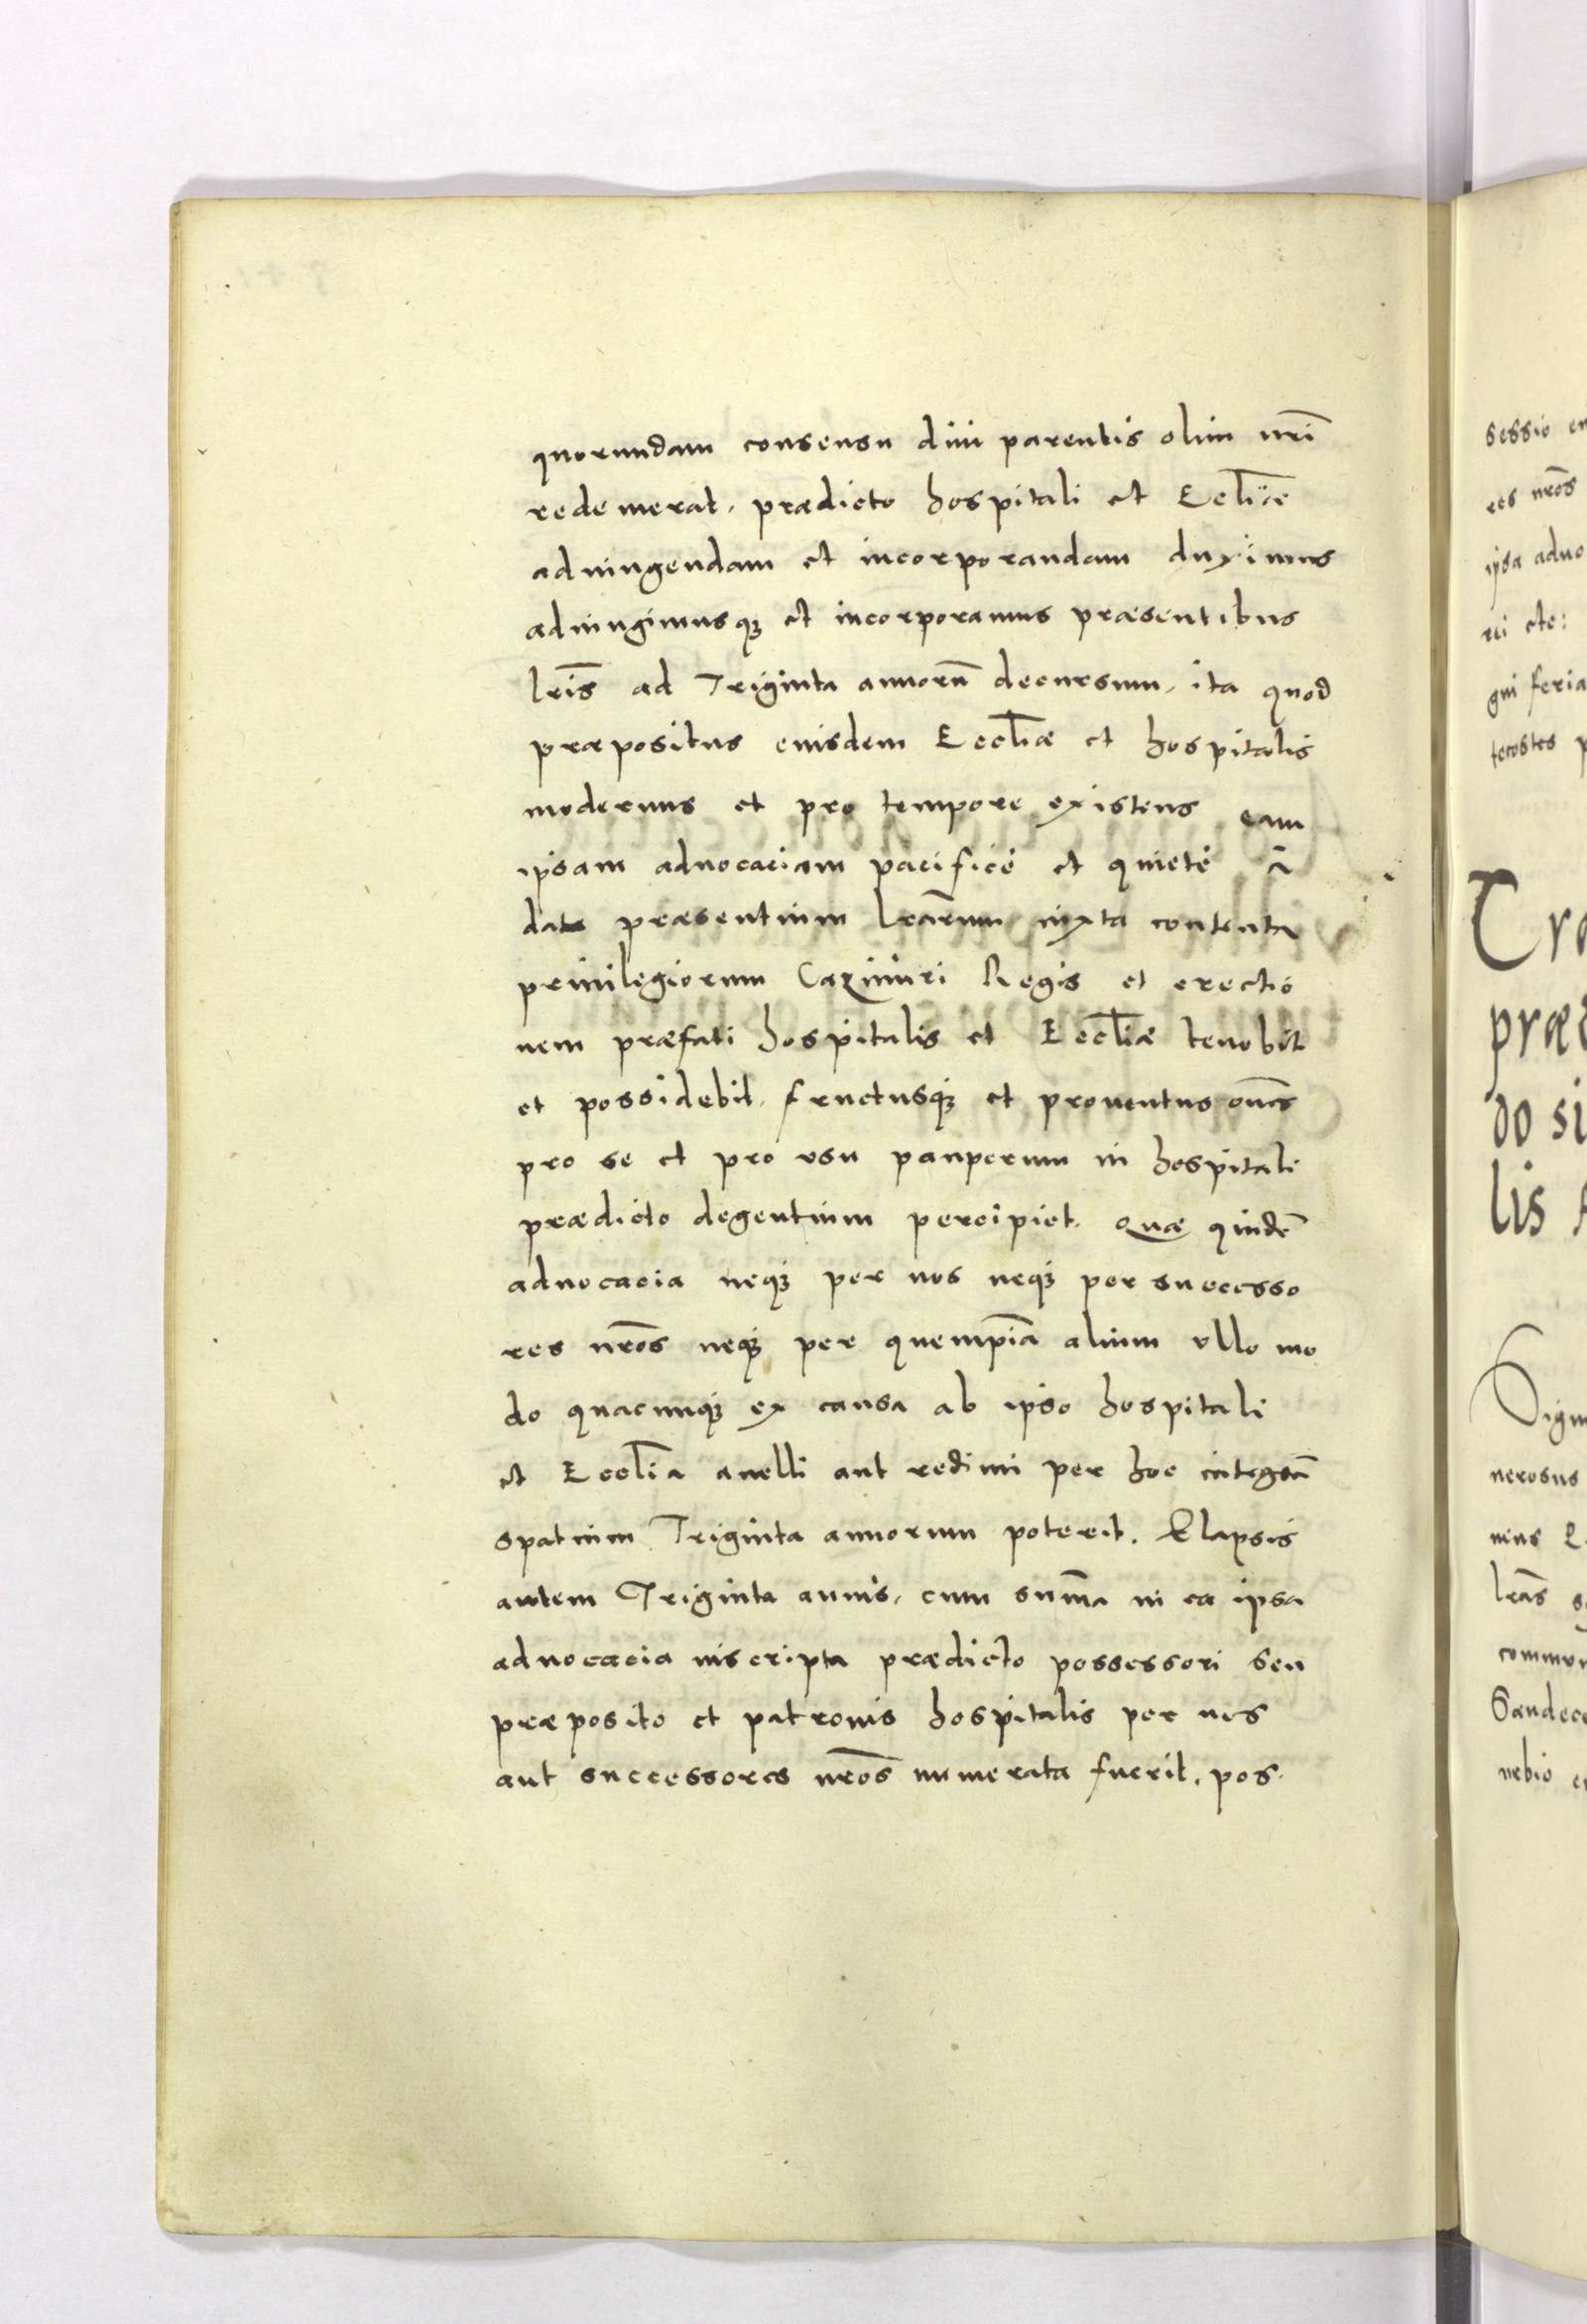 quorundam consensu diui parentis olim nr̄i
redemerat, prædicto hospitali et Eccl̄iæ
adiungendam et incorporandam duximus
adiungimusq₃ et incorporamus præsentibus
l̄ris ad Triginta annorū decursum, ita quod
præpositus eiusdem Eccl̄iæ et hospitalis
modernus et pro tempore existens eam
ipsam aduocaciam pacificè et quietè à
data præsentium l̄rarum iuxta contenta
priuilegiorum Cazimiri Regis et erectio
nem præfati hospitalis et Eccl̄iæ tenebit
et possidebit, fructusq₃ et prouentus om̄es
pro se et pro vsu pauperum in hospitali
prædicto degentium percipiet. Quæ quidē
aduocacia neq₃ per nos neq₃ per successo
res nr̄os neq₃ per quempiā alium vllo mo
do quacunq₃ ex causa ab ipso hospitali
et Eccl̄ia auelli aut redimi per hoc integrū
spatium Triginta annorum poterit. Elapsis
autem Triginta annis, cum sum̄a in ea ipsa
aduocacia inscripta prædicto possessori seu
præposito et patronis hospitalis per nos
aut successores nr̄os numerata fuerit, pos
sessio
res nr̄os
ipsa aduo
rei etc:
gni feria
tecostes p
Cra
præd
do si
lis
Sigi
nerosus
l̄ras
Sandece